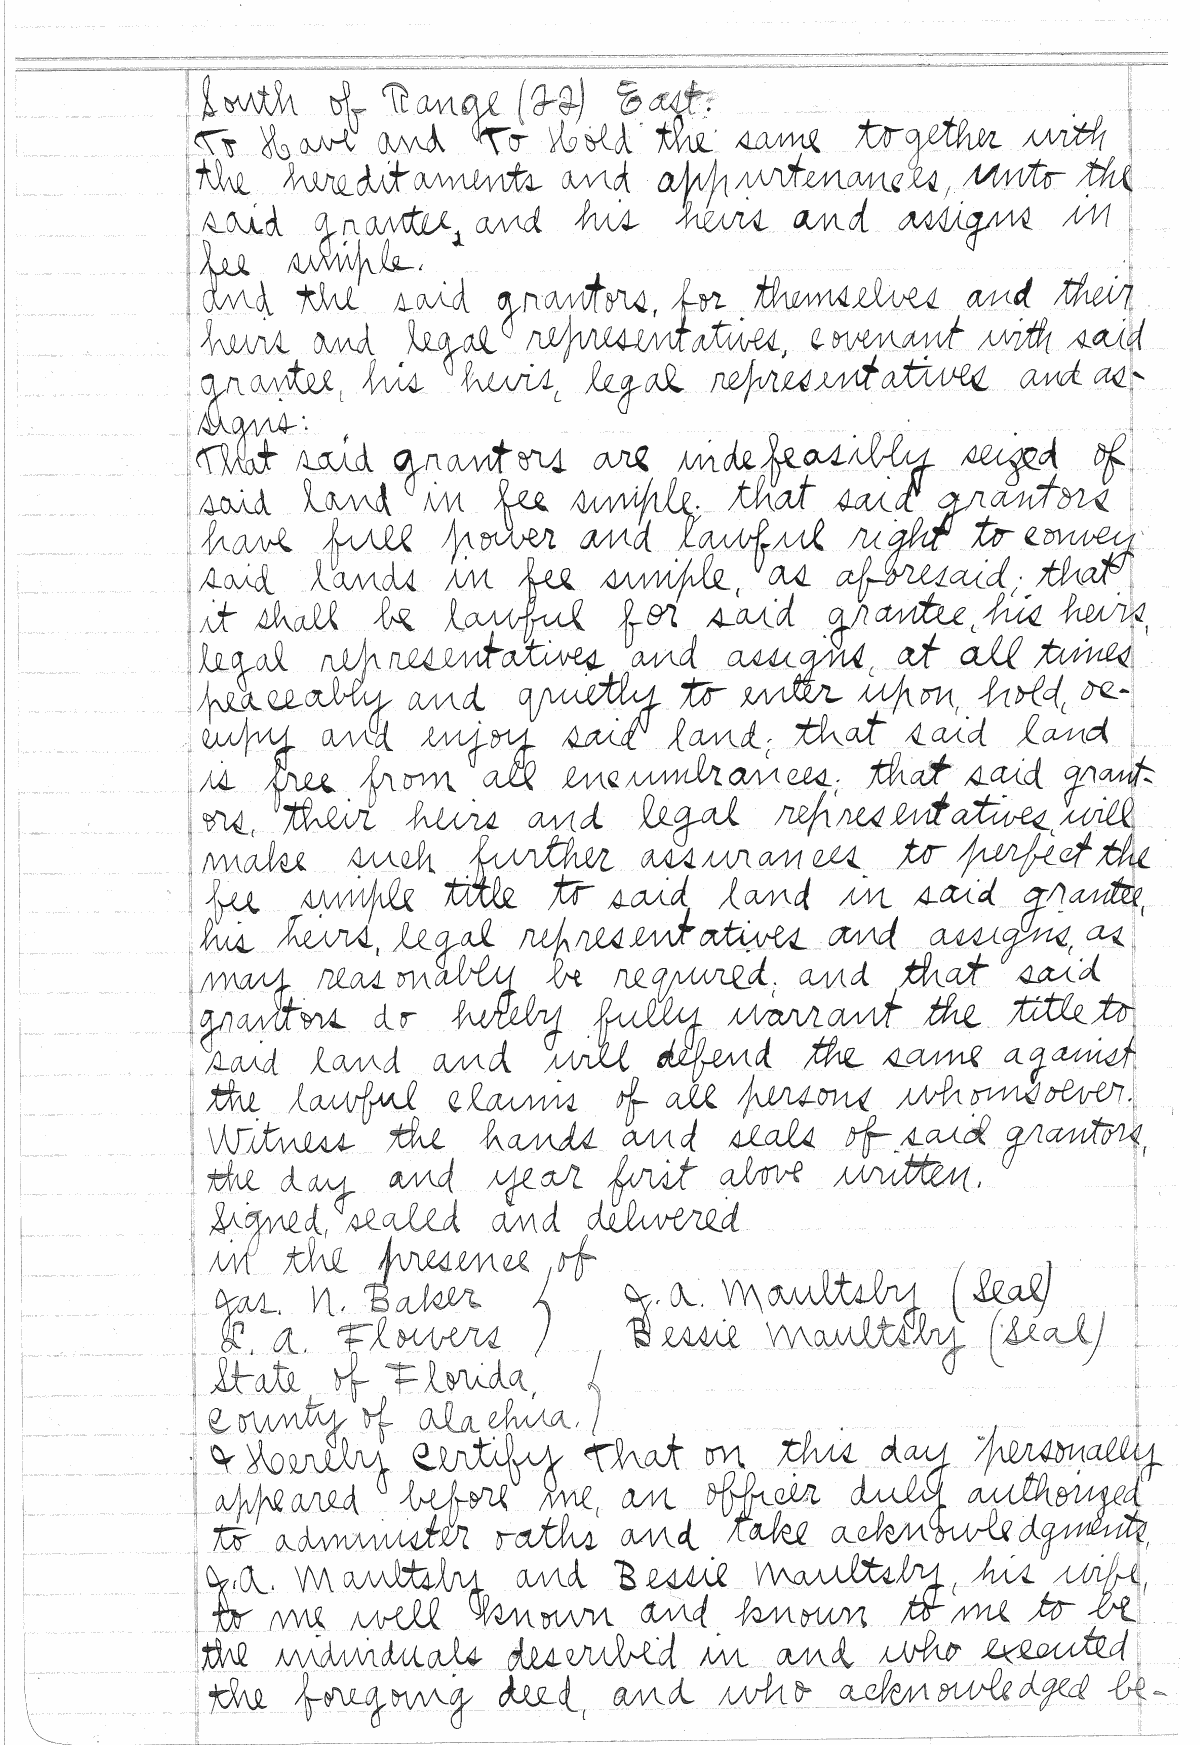 South of Range (22) East.
To Have and To Hold the same together with
the hereditaments and appurtenances, unto the
said grantee, and his heirs and assigns in
fee simple.
and the said grantors, for themselves and their
heirs and legal representatives, covenant with said
grantee, his heirs, legal representatives and as-
signs:
That said grantors are indefeasibly seized of
said land in fee simple; that said grantors
have full power and lawful right to convey
said lands in fee simple, as aforesaid; that
it shall be lawful for said grantee, his heirs,
legal representatives and assigns, at all times
peaceably and quietly to enter upon, hold, oc-
cupy and enjoy said land; that said land
is free from all encumbrances; that said grant-
ors, their heirs and legal representatives, will
make such further assurances to perfect the
fee simple title to said land in said grantee,
his heirs, legal representatives and assigns, as
may reasonably be required; and that said
grantors do hereby fully warrant the title to
said land and will defend the same against
the lawful claims of all persons whomsoever.
Witness the hands and seals of said grantors,
the day and year first above written.
Signed, sealed and delivered
in the presence of
Jas. N. Baker } J. A. Maultsby (Seal)
L. A. Flowers ) Bessie Maultsby (Seal)
State of Florida, {
County of Alachua. )
I Hereby Certify That on this day personally
appeared before me, an officer duly authorized
to administer oaths and take acknowledgments,
J. A. Maultsby and Bessie Maultsby, his wife,
to me well known and known to me to be
the individuals described in and who executed
the foregoing deed, and who acknowledged be-